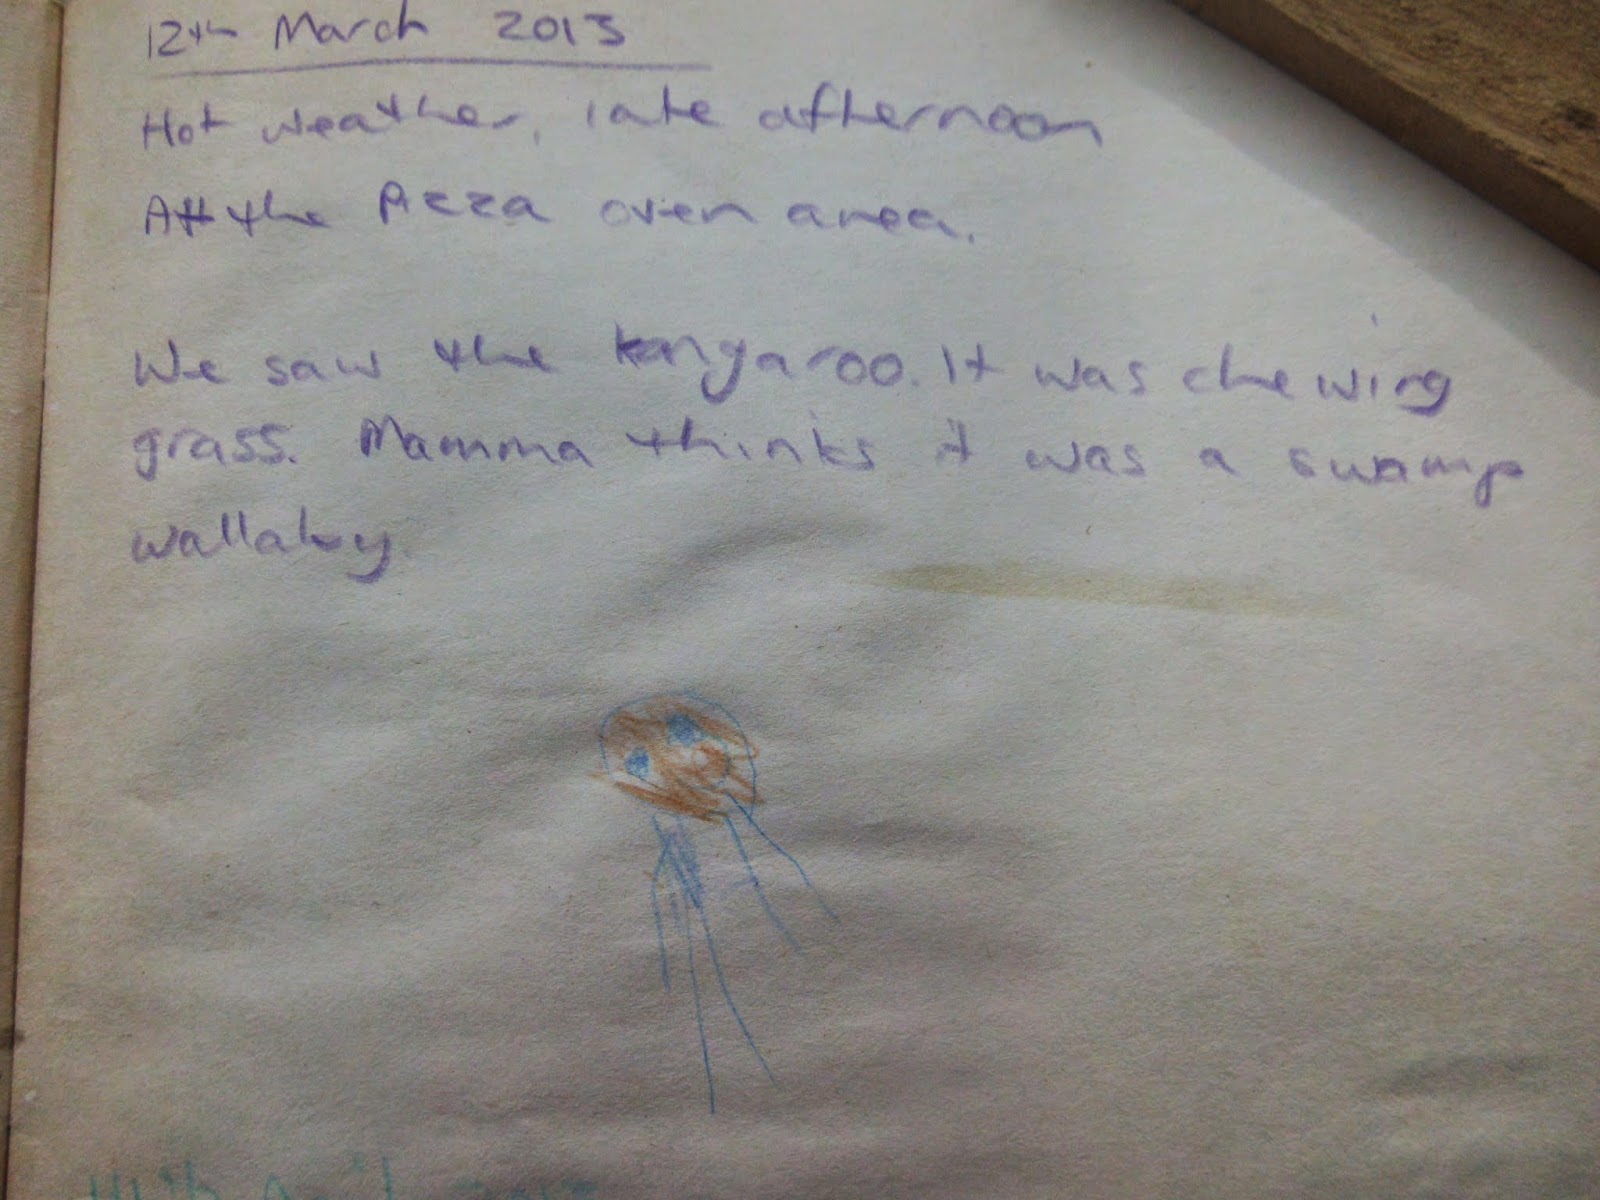 12th March 2013
Hot weather, late afternoon
At the Pizza oven area.
We saw the kangaroo. It was chewing
grass. Mamma thinks it was a swamp
wallaby.